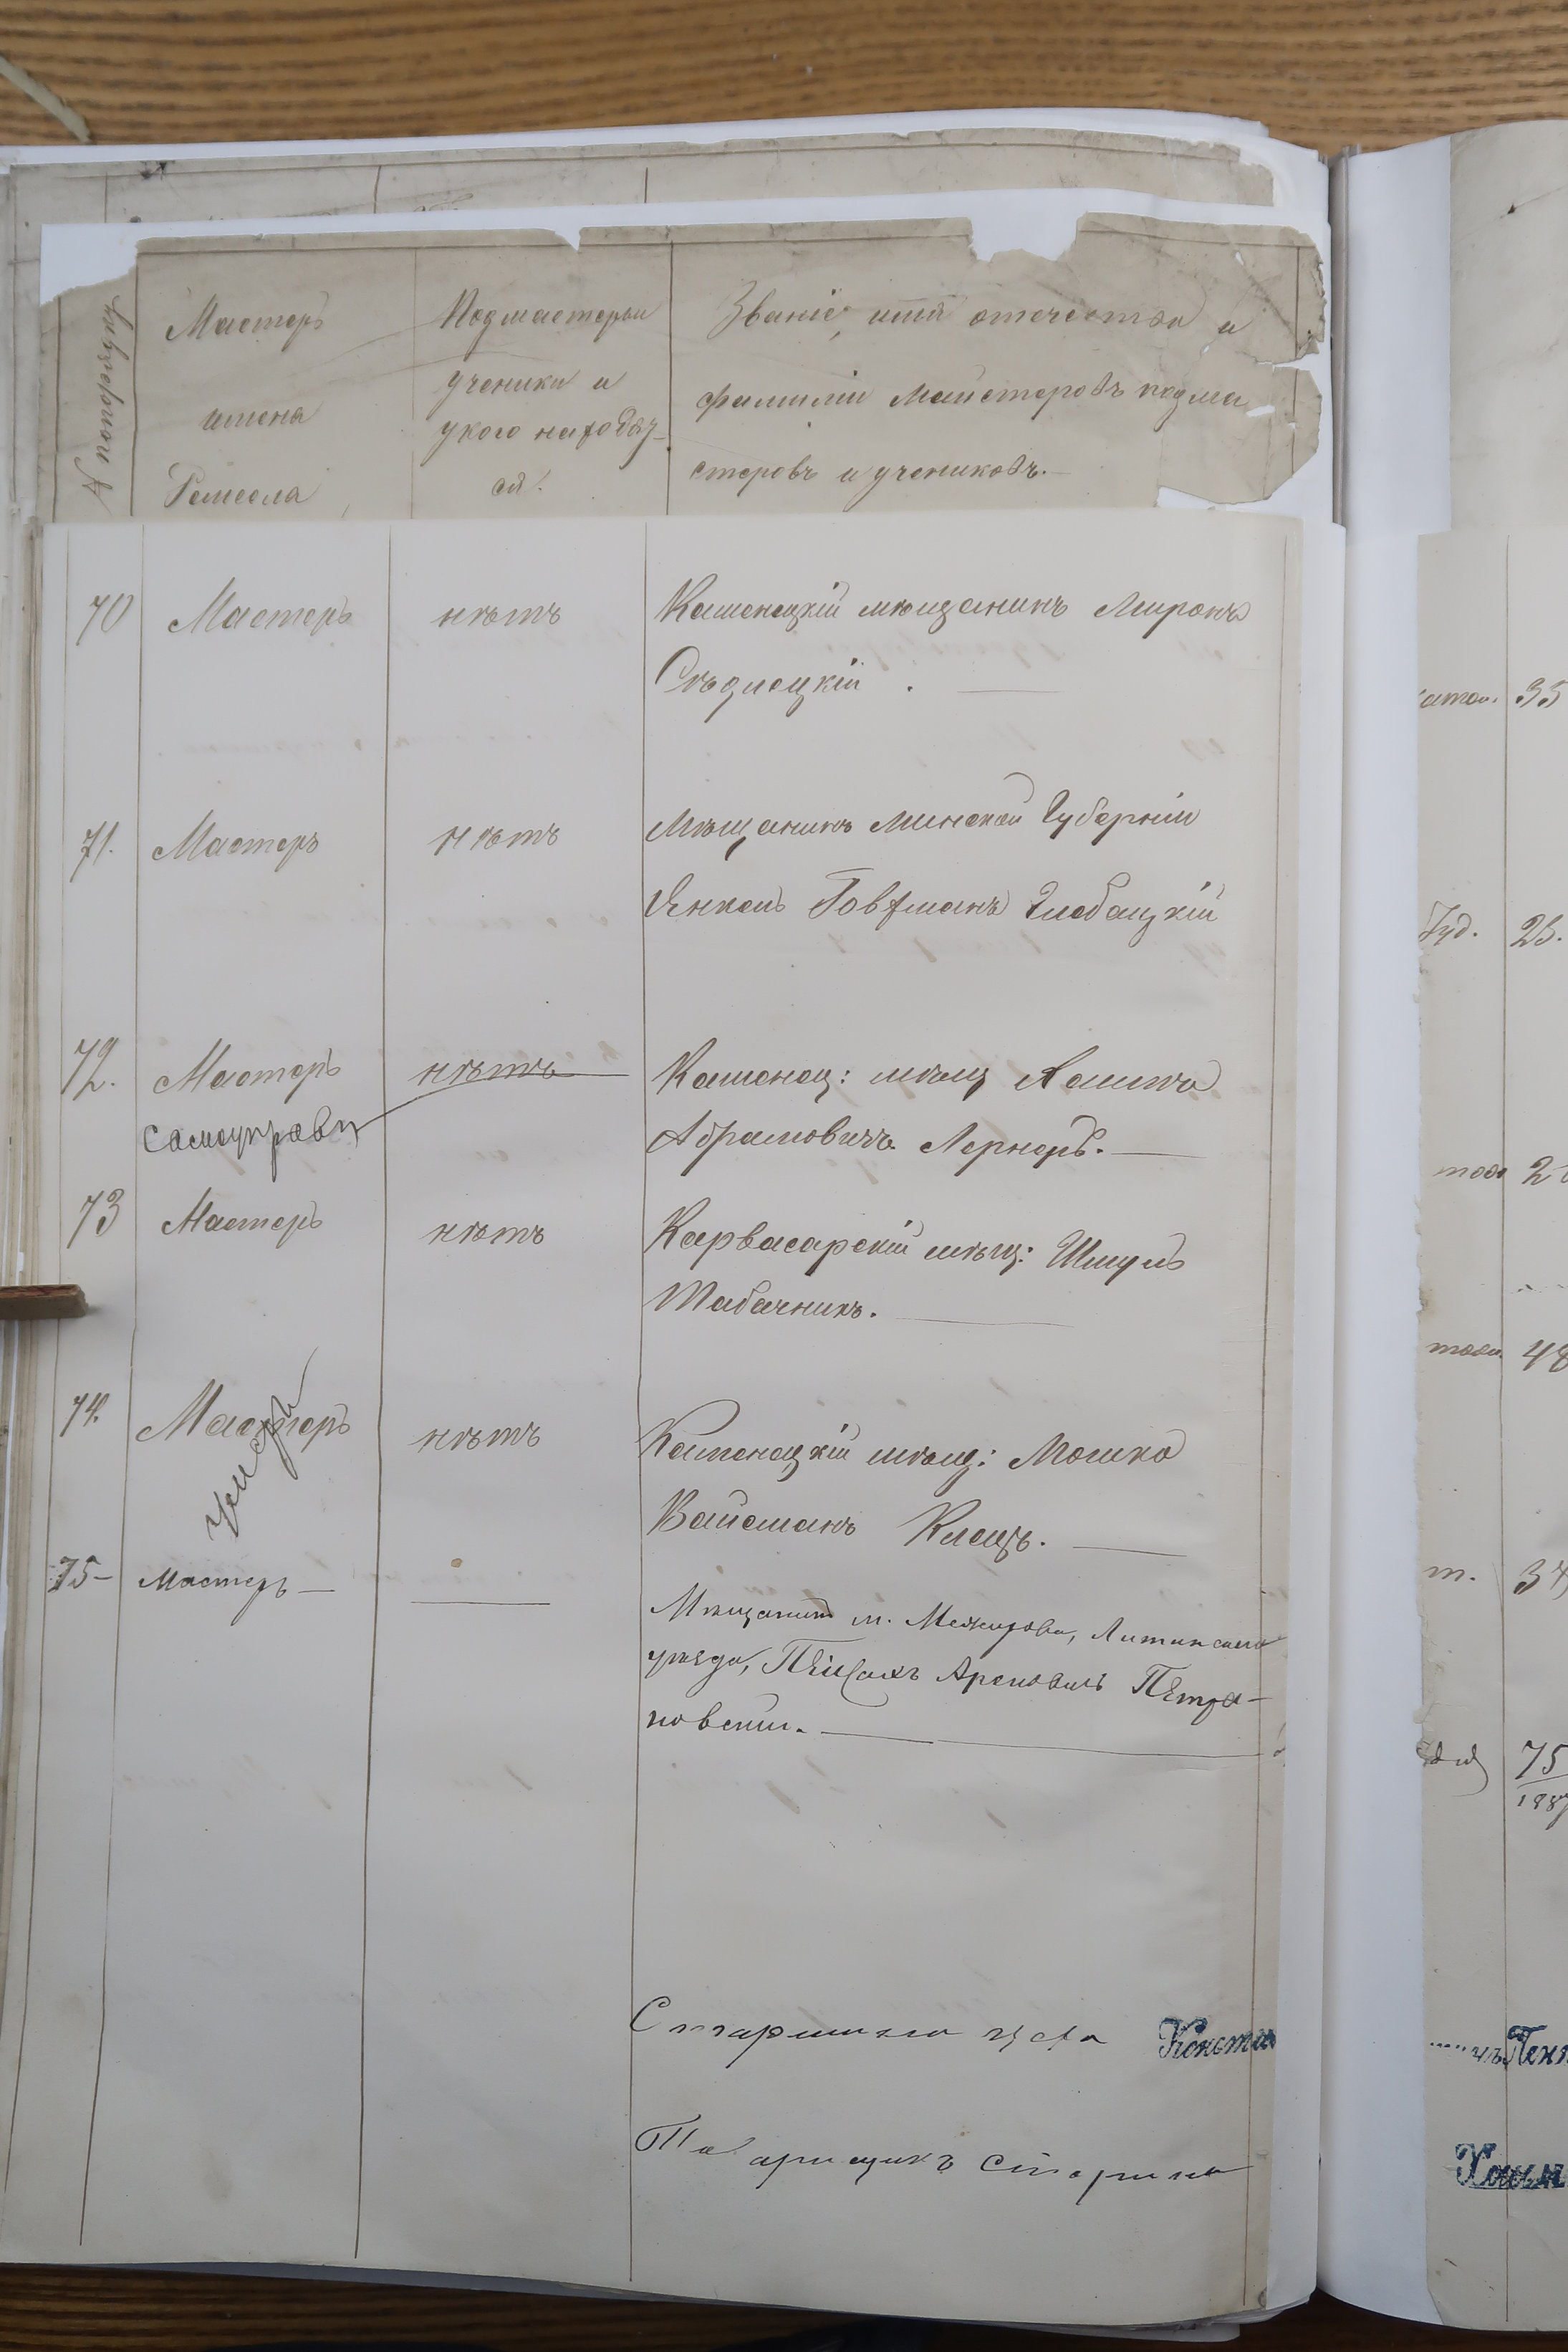 № по порядку
Мастеръ
имена
Ремесла
Подмастерьи
ученики и
укого находят-
ся.
Званіе, имя отечество и
фамиліи Майстеровъ подма
стеровъ и учениковъ.
70 Мастеръ нѣтъ Каменецкій мѣщанинъ Миронъ
Сѣдлецкій.
71. Мастеръ нѣтъ Мѣщанинъ Минской Губерніи
Янкель Говфманъ
72. Мастеръ нѣтъ Каменец: мѣщ
Абрамовичъ Лернеръ.
73 Мастеръ нѣтъ Карвасарскій мѣщ: Шмуль
Табачникъ.
74. Мастеръ нѣтъ Каменецкій мѣщ: Мошко
умеръ
Вайсманъ
75- Мастеръ — Мѣщанинъ м. Межирова, Литинскаго
уѣзда, Пейсахъ Ароновичъ Петра-
новскій.
Старшина цеха
Товарищикъ Старшина
35
25.
48
75
Хаим